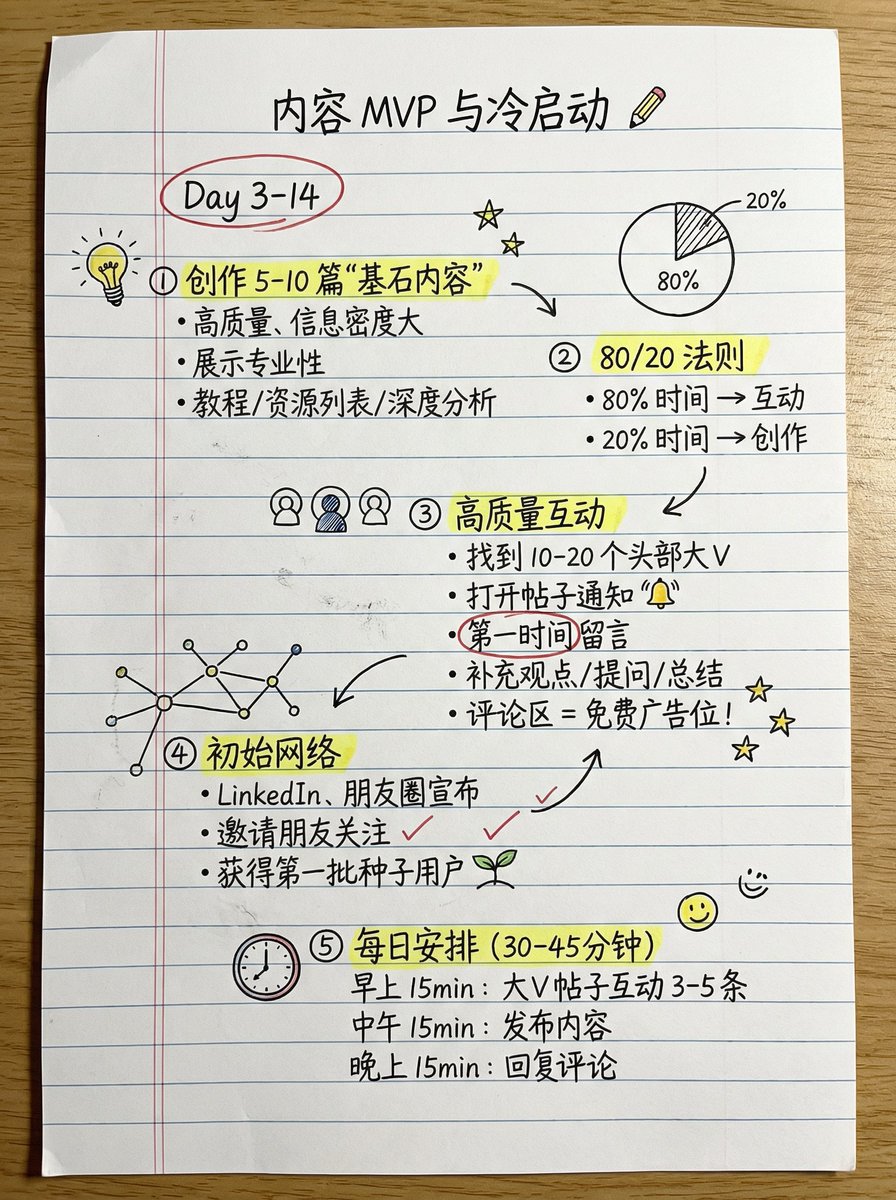 内容 MVP 与冷启动
Day 3-14
① 创作 5-10 篇“基石内容”
• 高质量、信息密度大
• 展示专业性
• 教程/资源列表/深度分析
20%
80%
② 80/20 法则
• 80% 时间 → 互动
• 20% 时间 → 创作
③ 高质量互动
• 找到 10-20 个头部大V
• 打开帖子通知
• 第一时间留言
• 补充观点/提问/总结
• 评论区 = 免费广告位!
④ 初始网络
• LinkedIn、朋友圈宣布
• 邀请朋友关注
• 获得第一批种子用户
⑤ 每日安排 (30-45分钟)
早上 15min: 大V帖子互动 3-5 条
中午 15min: 发布内容
晚上 15min: 回复评论